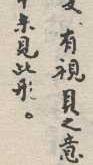 有視見之意
未見此形。